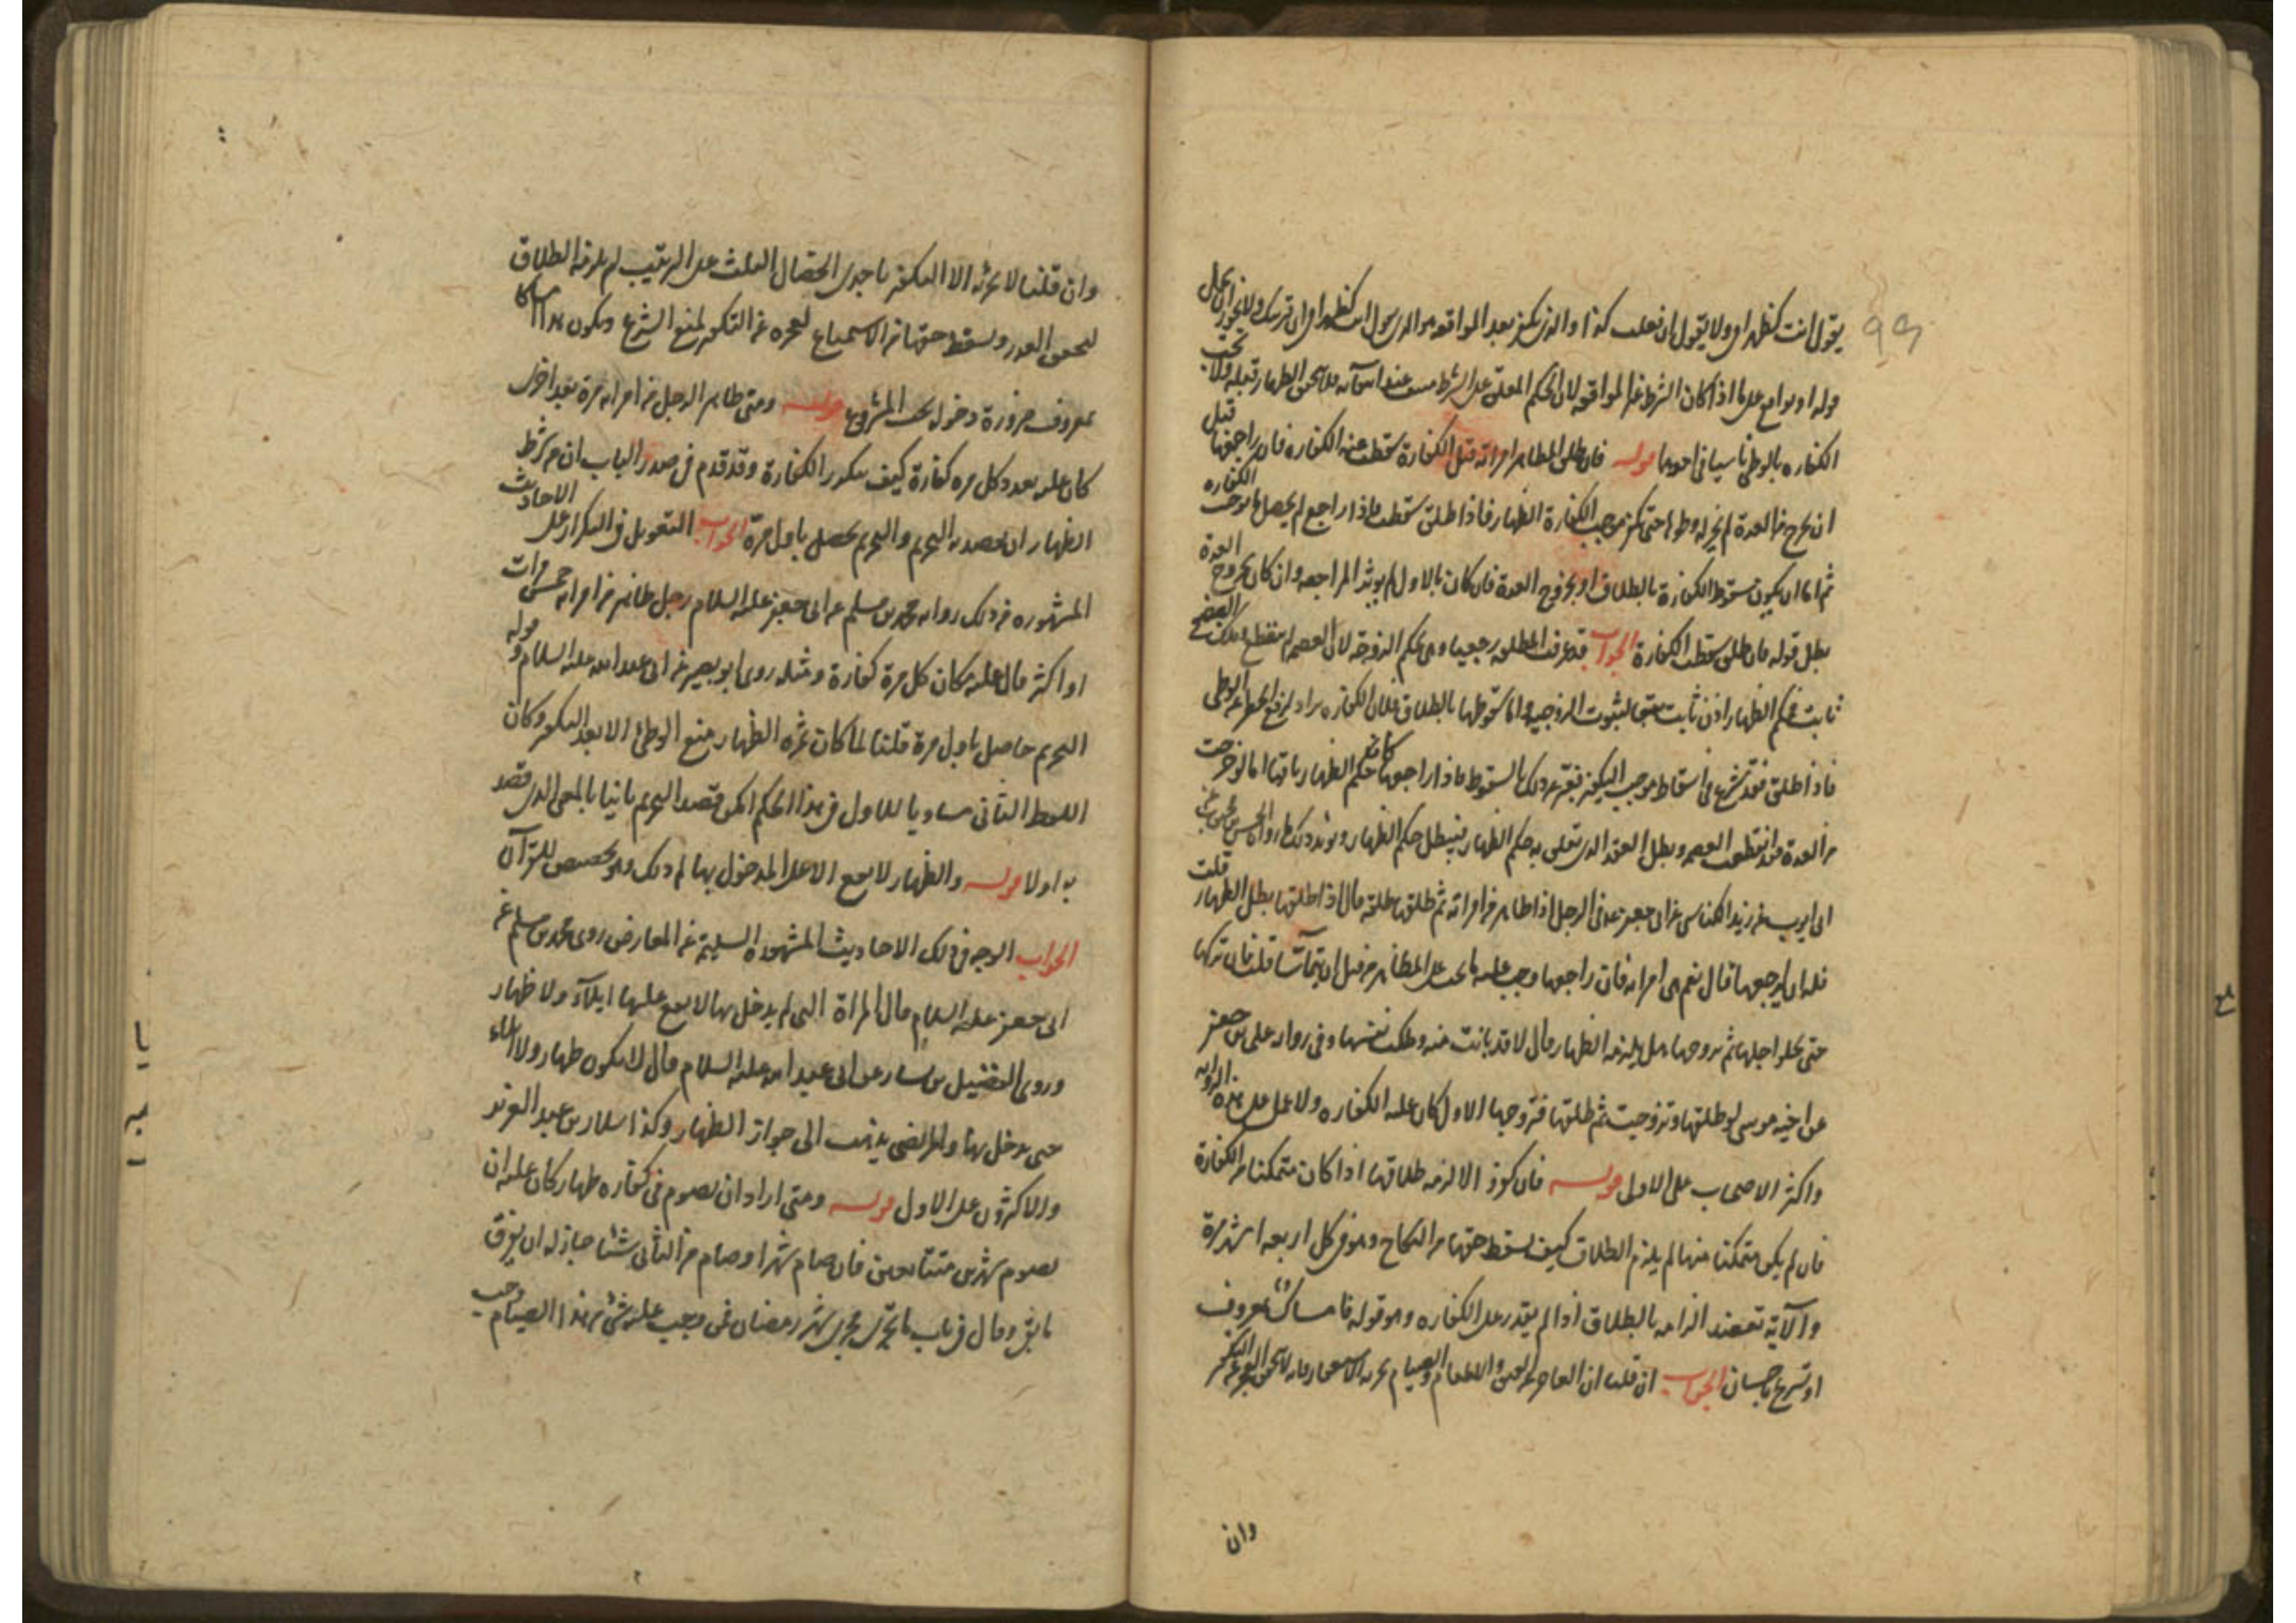 ٩٩
يقول انت كظهر امي ولا يقول ان فعلت كذا والذي يكفر بعد المواقعه هو الذي يقول انت كظهر امي ان قربتك ولا يجوز ان يحمل
قوله او يواقع على ما اذا كان الشرط غير المواقعة لان الحكم المعلق على الشرط عند فلا يتحقق الظهار قبله ولا تجب
الكفاره بالوطى ناسيا في احدهما قوله فان طلق المظاهر امراته قبل الكفارة سقطت عنه الكفاره فان راجعها قبل
ان يخرج من العدة لم يجز له وطؤها حتى يكفر موجب الكفارة الظهار فاذا طلق سقطت فاذا راجع لم يحصل ما يوجب الكفاره
ثم اما ان يكون سقوط الكفارة بالطلاق او بخروج العدة فان كان بالاول لم يؤثر المراجعه وان كان بخروج العدة
بطل قوله فان طلق سقطت الكفارة الجواب قد عرفت ان المطلقه رجعيا هي بحكم الزوجة لان العصمه لم تنقطع
ثابت فحكم الظهار اذن ثابت لثبوت الزوجية واما سقوطها بالطلاق فلان الكفاره يراد لرفع الحظر عن الوطى
فاذا طلق فقد شرع في اسقاط موجب التكفير فعبر عن ذلك بالسقوط فاذا راجعها كان حكم الظهار باقيا اما لو خرجت
من العدة فقد انقطعت العصمه وبطل العقد الذي تعلق به حكم الظهار فيبطل حكم الظهار ويؤيد ذلك ما رواه الحسن بن محبوب عن
ابي ايوب عن يزيد الكناسي عن ابي جعفر في الرجل اذا ظاهر من امراته ثم طلقها طلقه قال اذا طلقها بطل الظهار قلت
فله ان يراجعها قال نعم هي امراته فان راجعها وجب عليه ما يجب على المظاهر من قبل ان يتماسا قلت فان تركها
حتى يخلو اجلها ثم تزوجها هل يلزمه الظهار قال لا قد بانت منه وملكت نفسها وفي رواية علي بن جعفر
عن اخيه موسى لو طلقها وتزوجت ثم طلقها فتزوجها الاول كان عليه الكفاره ولا عمل على هذه الرواية
واكثر الاصحاب على الاول قوله فان كفر والا الزمه طلاقها اذا كان متمكنا من الكفارة
فان لم يكن متمكنا منها لم يلزم الطلاق كيف يسقط حقها من النكاح وهو في كل اربعه اشهر مرة
والآية تعضد الزامه بالطلاق اذا لم يقدر على الكفاره وهو قوله فامساك بمعروف
او تسريح باحسان الجواب ان قلنا ان العاجز عن العتق والاطعام والصيام يجزيه الاستغفار فانه لا يتحقق العجز عن التكفير
وان
وان قلنا لا يجزئه الا التكفير باحدى الخصال الثلث على الترتيب لم يلزمه الطلاق
لتحقق العذر ويسقط حقها من الاستمتاع لعجزه عن التكفير لمنع الشرع ويكون هذا امساكا
بمعروف ضرورة دخوله تحت المشروع قوله ومتى ظاهر الرجل من امراته مرة بعد اخرى
كان عليه بعدد كل مره كفارة كيف يتكرر الكفارة وقد تقدم في صدر الباب ان من شرط
الظهار ان يقصد به التحريم والتحريم يحصل باول مرة الجواب التعويل في التكرار على الاحاديث
المشهوره فمن ذلك رواية محمد بن مسلم عن ابي جعفر عليه السلام رجل ظاهر من امراته خمس مرات
او اكثر قال عليه مكان كل مرة كفارة ومثله روى ابو بصير عن ابي عبد الله عليه السلام قوله
التحريم حاصل باول مرة قلنا لما كان ثمره الظهار منع الوطئ الا بعد التكفير وكان
اللفظ الثاني مساويا للاول في هذا الحكم امكن قصد التحريم ثانيا بالمعنى الذي قصد
به اولا قوله والظهار لا يقع الا على المدخول بها لم ذلك وهو تخصيص للقرآن
الجواب الوجه في ذلك الاحاديث المشهوره السليمة عن المعارض روى محمد بن مسلم عن
ابي جعفر عليه السلام قال المراة التي لم يدخل بها لا يقع عليها ايلآء ولا ظهار
وروى الفضيل بن يسار عن ابي عبد الله عليه السلام قال لا يكون ظهار ولا ايلاء
حتى يدخل بها والمرتضى يذهب الى جواز الظهار وكذا سلار بن عبد العزيز
والاكثرون على الاول قوله ومتى اراد ان يصوم في كفاره ظهار كان عليه ان
يصوم شهرين متتابعين فان صام شهرا وصام من الثاني شيئا جاز له ان يفرق
ما بقى وقال في باب ما يجري مجرى شهر رمضان فمن وجب عليه شئ من هذا الصيام وجب